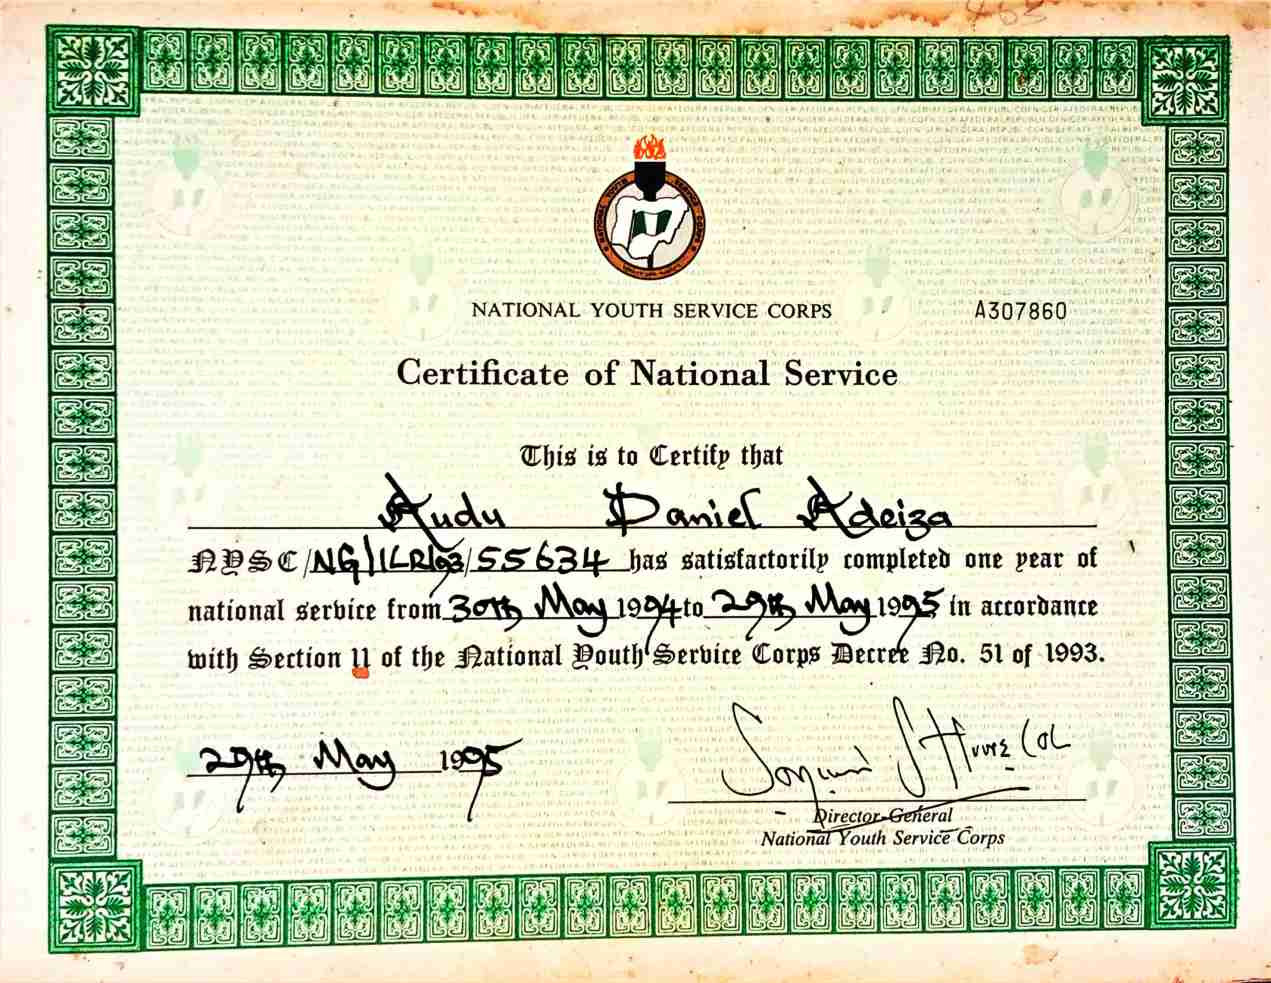 NATIONAL YOUTH SERVICE CORPS
A307860
Certificate of National Service
This is to Certify that
Audu Daniel Adeiza
NYSC/NG/ILR/93/55634 has satisfactorily completed one year of
national service from 30th May 1994 to 29th May 1995 in accordance
with Section 11 of the National Youth Service Corps Decree No. 51 of 1993.
29th May 1995
Director-General
National Youth Service Corps